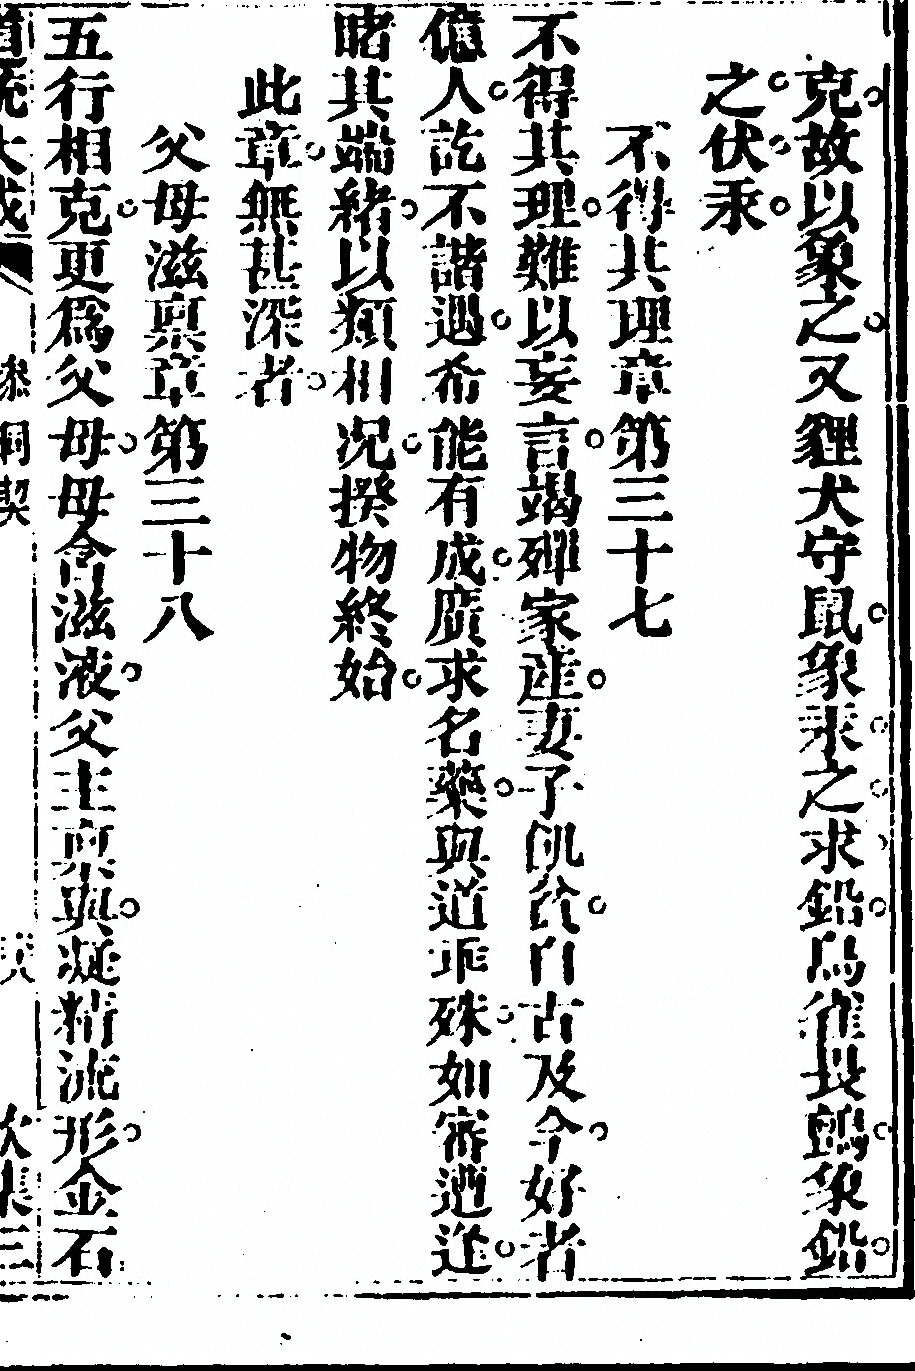 克故以象之又貍犬守鼠象汞之求鉛鳥雀畏鸇象鉛
之伏汞
不得其理章第三十七
不得其理難以妄言竭殫家產妻子飢貧自古及今好者
億人訖不諧遇希能有成廣求名藥與道乖殊如審遭逢
睹其端緒以類相况揆物終始
此章無甚深者
父母滋稟章第三十八
五行相克更爲父母母含滋液父主稟與凝精流形金石
道統大成 參同契 三